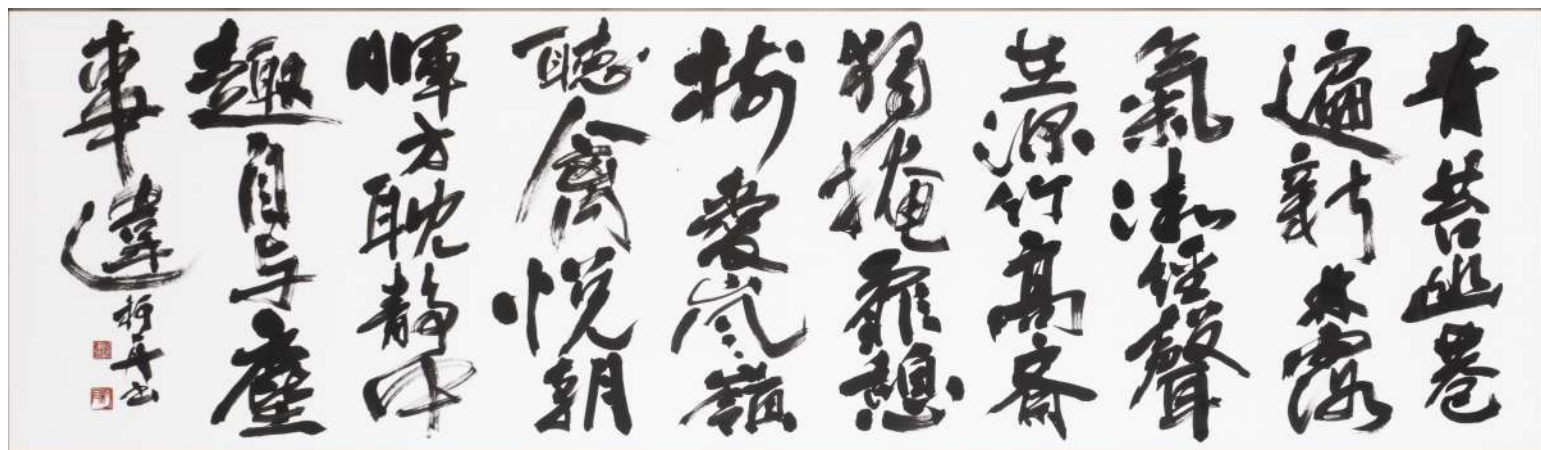 青苔幽巷
遍新林露
氣微經聲
在深竹高齋
獨掩扉憩
樹愛嵐嶺
聽禽悅朝
暉方耽靜中
趣自与塵
事違
舟书